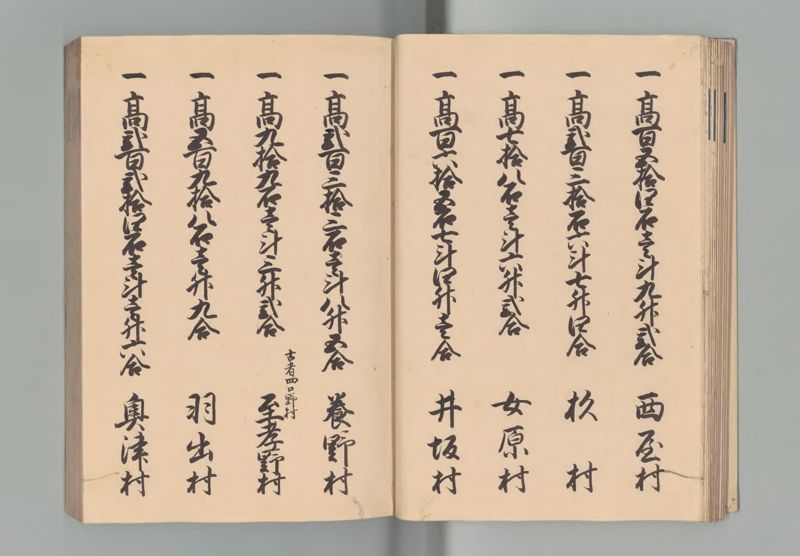 一高百五拾四石壱斗九升弐合 西屋村
一高弐百三拾石六斗七升四合 杉村
一高七拾八石壱斗六升弐合 女原村
一高百六拾五石七斗四升壱合 井坂村
一高弐百三拾三石壱斗八升五合 養野村
古者四口野村
一高九拾九石壱斗三升弐合 至孝野村
一高五百九拾八石壱升九合 羽出村
一高弐百弐拾四石壱斗壱升六合 奥津村